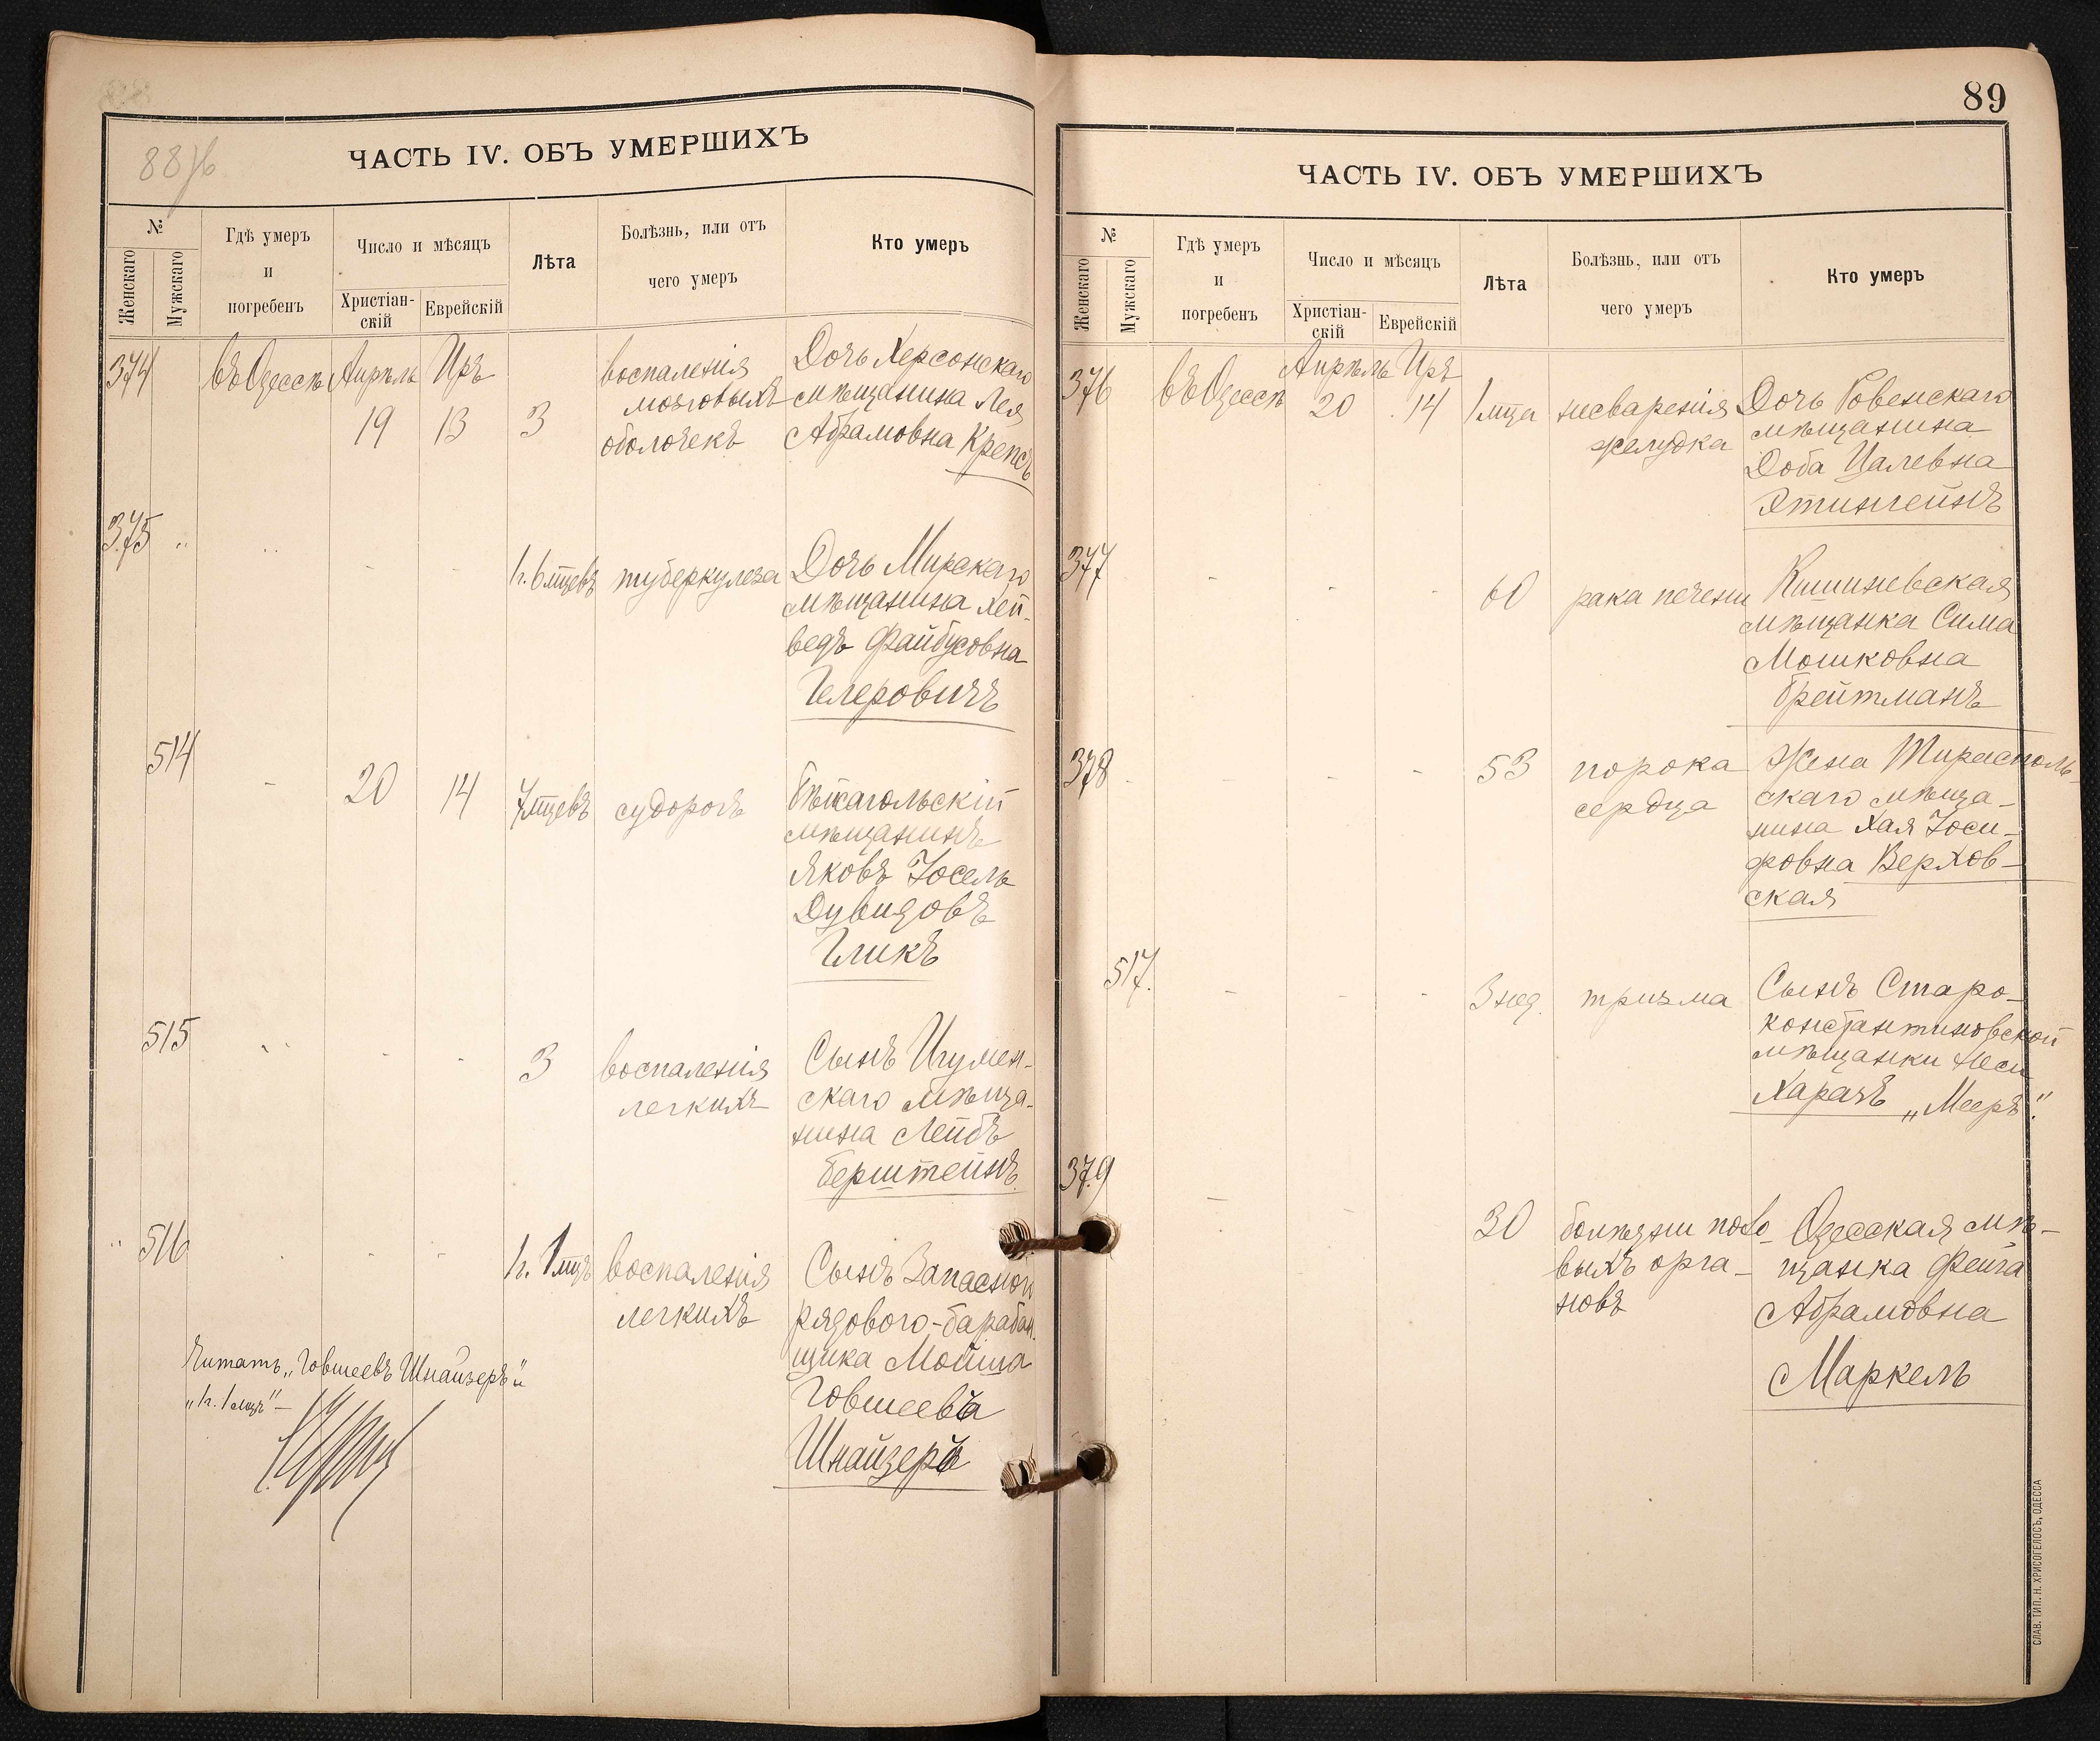 88 об
ЧАСТЬ IV. ОБЪ УМЕРШИХЪ
№
Женскаго
Мужскаго
Гдѣ умеръ
и
погребенъ
Число и мѣсяцъ
Христіан-
скій
Еврейскій
Лѣта
Болѣзнь, или отъ
чего умеръ
Кто умеръ
374 въ Одессѣ Апрѣль Иръ воспаленія Дочь Херсонскаго
19 13 3 мозговыхъ мѣщанина Лея
оболочекъ Абрамовна Крепсъ
375 г. 6 мцевъ туберкулеза Дочь Мирскаго
мѣщанина Хей-
ведъ Файбусовна
Гелеровичъ
514 20 14 7 мцевъ судорогъ
мѣщанинъ
Яковъ Іосель
Дувидовъ
Гликъ
515 3 воспаленія Сынъ Игумен-
легкихъ скаго мѣща-
нина Лейбъ
Берштейнъ
516 1 г. 1 мцъ воспаленія Сынъ Запасной
легкихъ рядового-барабан-
щика Мойша
Говшеевъ
Шнайзеръ
Читать „Говшеевъ Шнайзеръ" и
„1 г. 1 мцъ" —
89
ЧАСТЬ IV. ОБЪ УМЕРШИХЪ
№
Женскаго
Мужскаго
Гдѣ умеръ
и
погребенъ
Число и мѣсяцъ
Христіан-
скій
Еврейскій
Лѣта
Болѣзнь, или отъ
чего умеръ
Кто умеръ
376 въ Одессѣ Апрѣль Иръ
20 14 1 мца несваренія Дочь Ровенскаго
желудка мѣщанина
Доба Цалевна
Этингейнъ
377 60 рака печени Кишиневская
мѣщанка Сима
Мошковна
Брейтманъ
378 53 порока Жена Тирасполь-
сердца скаго мѣща-
нина Хая Іоси-
фовна Верхов-
ская
517. 3 нед. тризма Сынъ Старо-
константиновской
мѣщанки Неси
Харазъ „Мееръ".
379 30 болѣзни поло- Одесская мѣ-
выхъ орга- щанка Фейга
новъ Абрамовна
Маркель
СЛАВ. ТИП. Н. ХРИСОГЕЛОСЪ, ОДЕССА